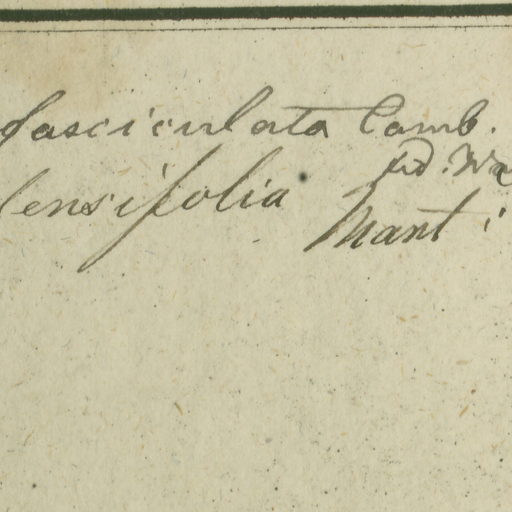 fasciculata Camb.
fid. Wa
lensifolia. Mant i